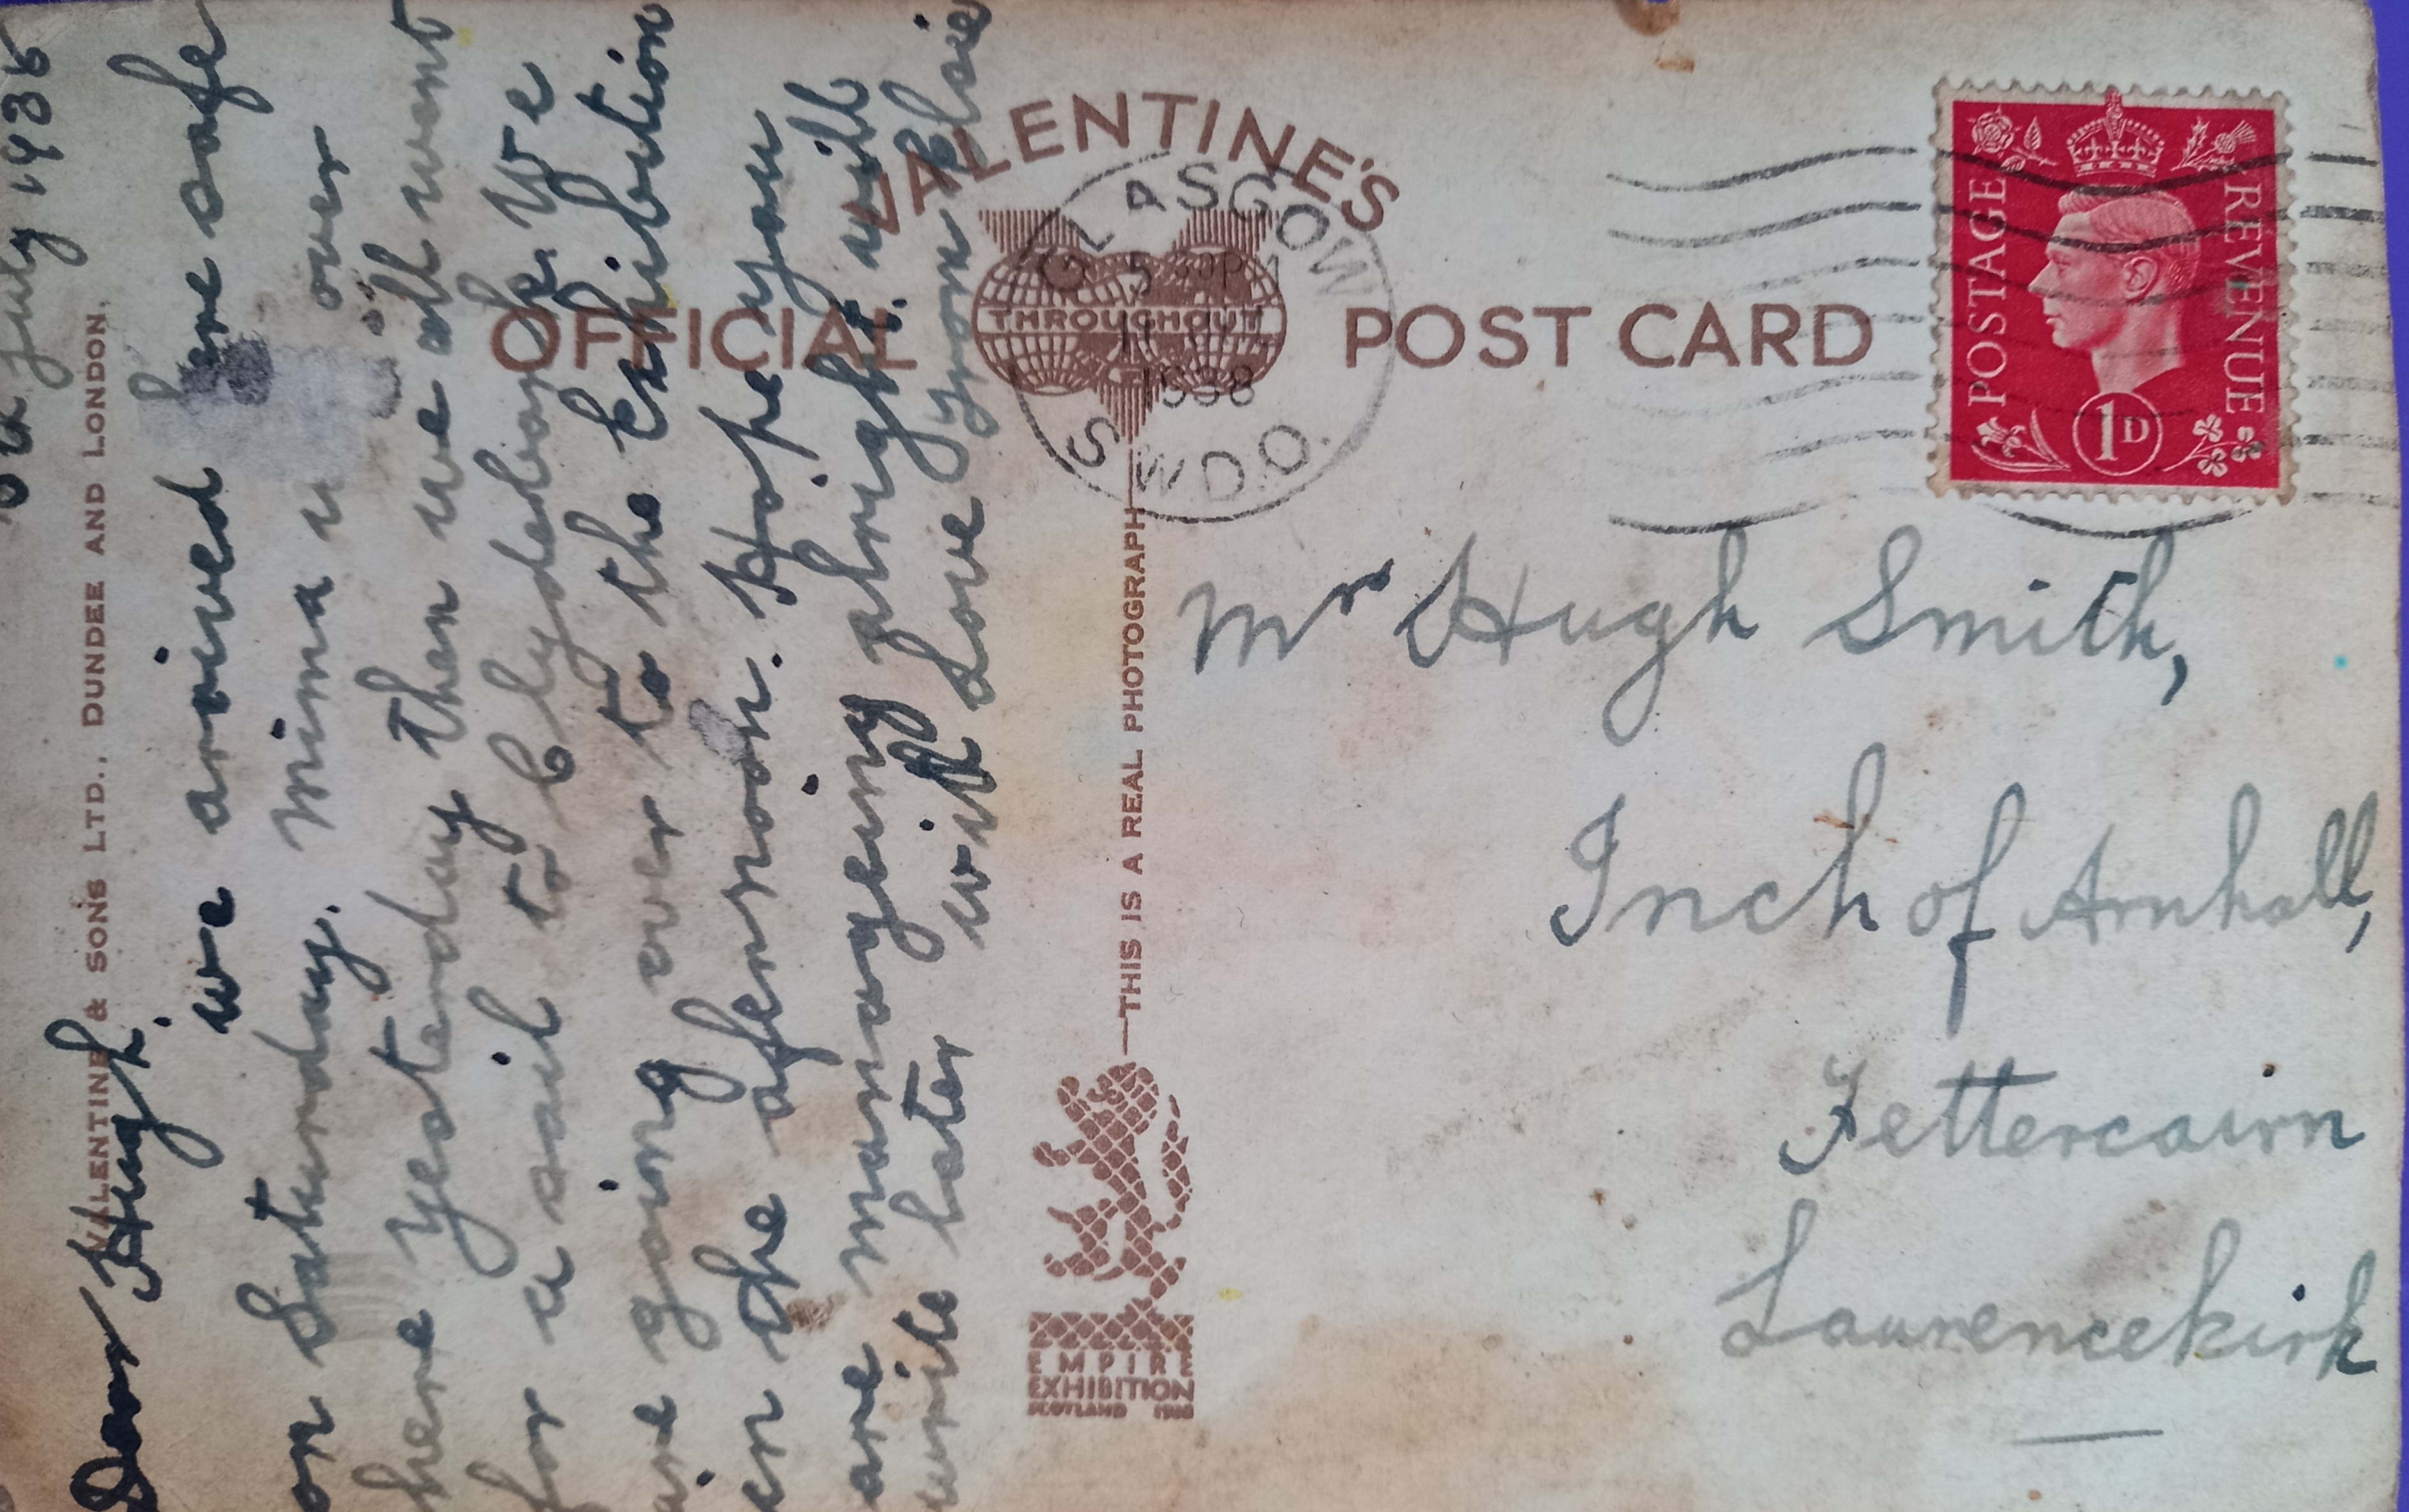 July 193
Dear Hugh.
we arrived here safe
on Saturday. Mima over
here yesterday then we all went
for a sail to Clydebank. We
are going over to the Exhibition
in the afernoon. Hope you
are manageing alright. will
write later with Love from Elsie
VALENTINE & SONS LTD., DUNDEE AND LONDON.
VALENTINE'S
OFFICIAL POST CARD
THROUGHOUT
GLASGOW
5 30 PM
11 JUL
1938
S.W.D.O.
POSTAGE REVENUE
1D
THIS IS A REAL PHOTOGRAPH
EMPIRE
EXHIBITION
SCOTLAND 1938
Mrs Hugh Smith,
Inch of Arnhall,
Fettercairn
Laurencekirk